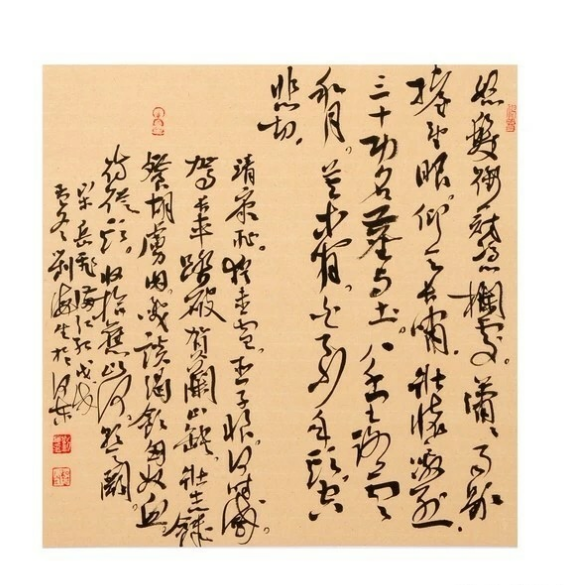 怒髮衝冠憑欄處。瀟瀟雨歇.
抬望眼。仰天長嘯。壯懷激烈.
三十功名塵與土。八千里路雲
和月。莫等閒。白了少年頭。空
悲切.
靖康恥。猶未雪。臣子恨。何時滅。
駕長車踏破賀蘭山缺。壯志飢
餐胡虜肉。笑談渴飲匈奴血
待從頭。收拾舊山河。朝天闕。
宋岳飛滿江紅戊戌
冬劉海生於